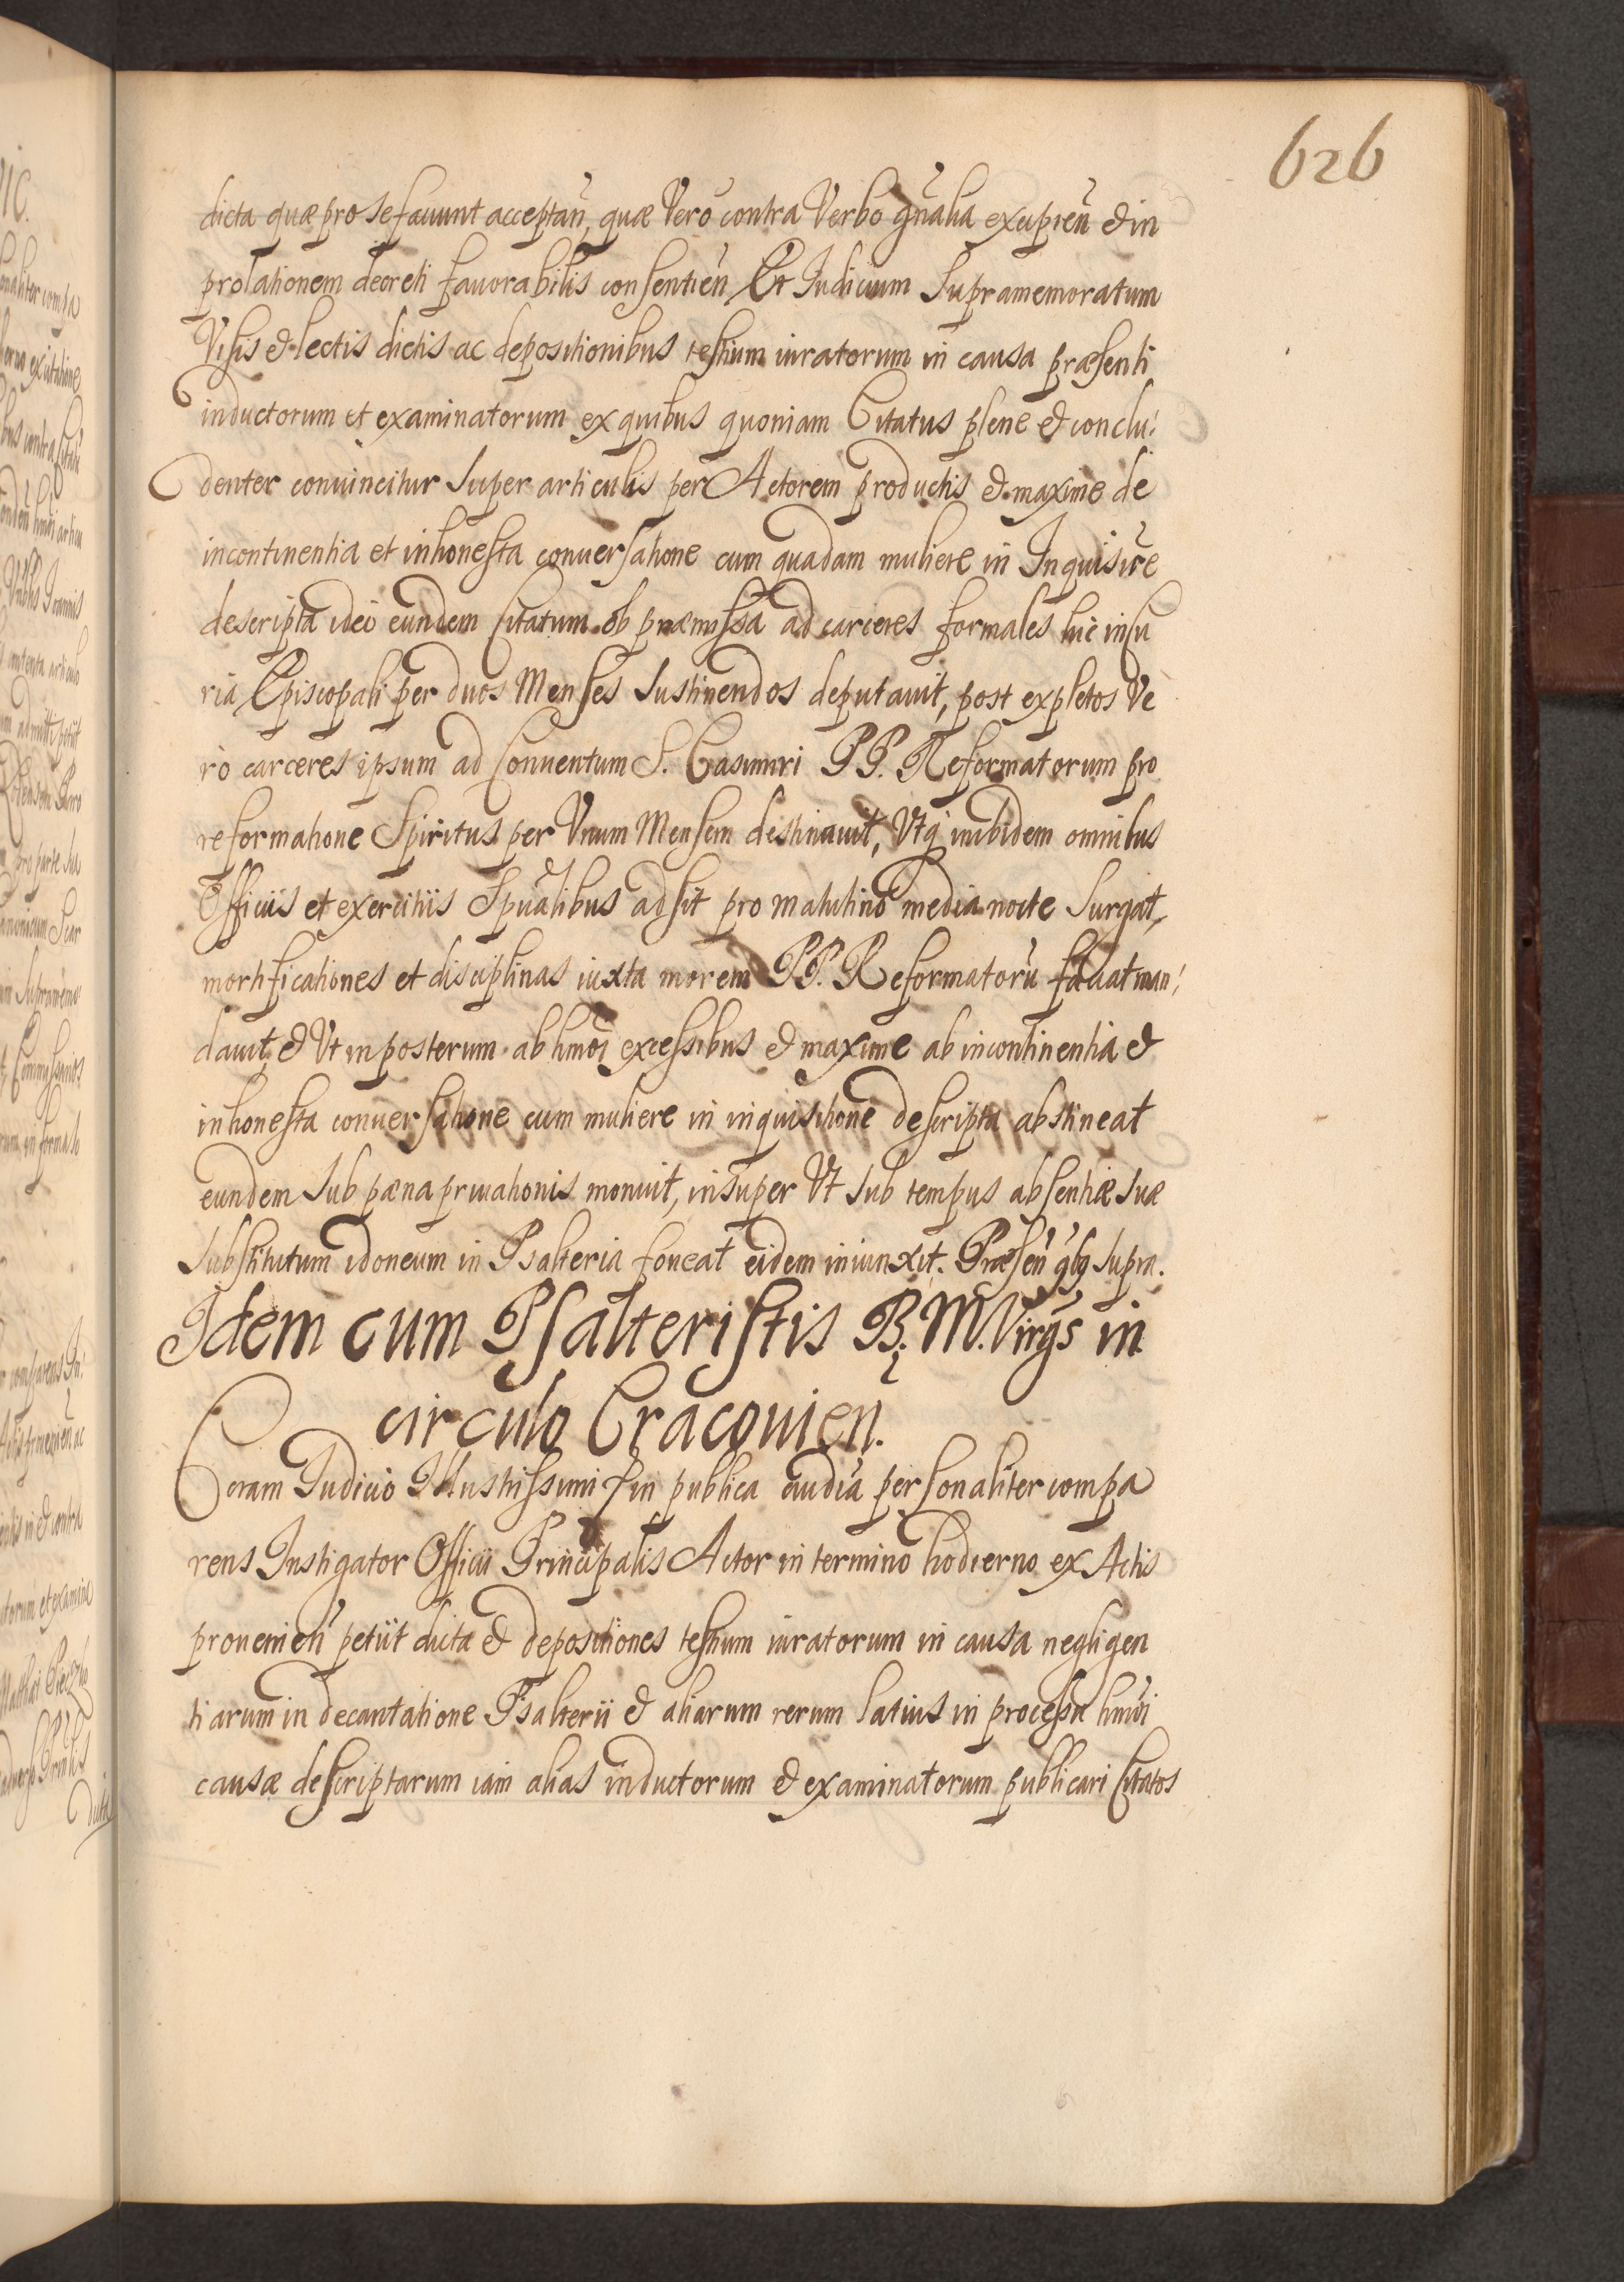 626
dicta quæ pro se faciunt acceptan̄, quæ Verò contra Verbo gn̄alia excipien̄ & in
prolationem decreti favorabilis consentien̄ Et Iudicium Supramemoratum
Visis & lectis dictis ac depositionibus testium iuratorum in causa præsenti
inductorum et examinatorum ex quibus quoniam Citatus plene & conclu:
denter convincitur Super articulis per Actorem productis & maxime de
incontinentia et inhonesta conversatione cum quadam muliere in Inquisit̄e
descripta ideò eundem Citatum ob præmissa ad carceres formales hic in Cu
ria Episcopali per duos Menses Sustinendos deputavit, post expletos Ve
rò carceres ipsum ad Conventum S. Casimiri PP. Reformatorum pro
reformatione Spiritus per Unum Mensem destinavit, Utq̄ inibidem omnibus
Officiis et exercitiis Spūalibus adsit pro matutino media nocte Surgat,
mortificationes et disciplinas iuxta morem PP. Reformatorū faciat man:
davit, & Ut inposterum ab hmōi excessibus & maxime ab incontinentia &
inhonesta conversatione cum muliere in inquisitione descripta abstineat
eundem Sub pæna privationis monuit, insuper Ut Sub tempus absentiæ Suæ
Substitutum idoneum in Psalteria foveat eidem iniunxit. Præsen̄ qbq Supra.
Idem cum Psalteristis B. M. Virg̃s in
circulo Cracovien̄.
Coram Iudicio Illustrissimi &in publica audīa personaliter compa
rens Instigator Officii Principalis Actor in termino hodierno ex Actis
provenien̄ti petiit dicta & depositiones testium iuratorum in causa negligen
tiarum in decantatione Psalterii & aliarum rerum latius in processu hmōi
causæ descriptarum iam alias inductorum & examinatorum publicari Citatos